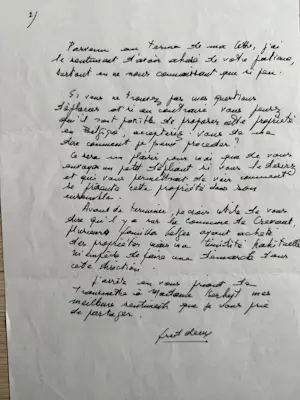 2)
Parvenu au terme de ma lettre, j'ai
le sentiment d'avoir abusé de votre patience,
surtout en ne nous connaissant que si peu.
Si vous ne trouvez pas mes questions
déplacées et si au contraire vous pensez
qu'il soit possible de proposer cette propriété
en Belgique, accepteriez vous de me
dire comment je peux procéder?
Ce sera un plaisir pour moi que de vous
envoyer un petit dépliant si vous le désirez
et qui vous permettrait de voir comment
se présente cette propriété dans son
ensemble.
Avant de terminer, je crois utile de vous
dire qu'il y a sur la commune de
plusieurs familles belges ayant acheté
des propriétés mais ma timidité habituelle
m'empêche de faire une démarche dans
cette direction.
J'arrête en vous priant de
transmettre à Madame mes
meilleurs sentiments que je vous prie
de partager.